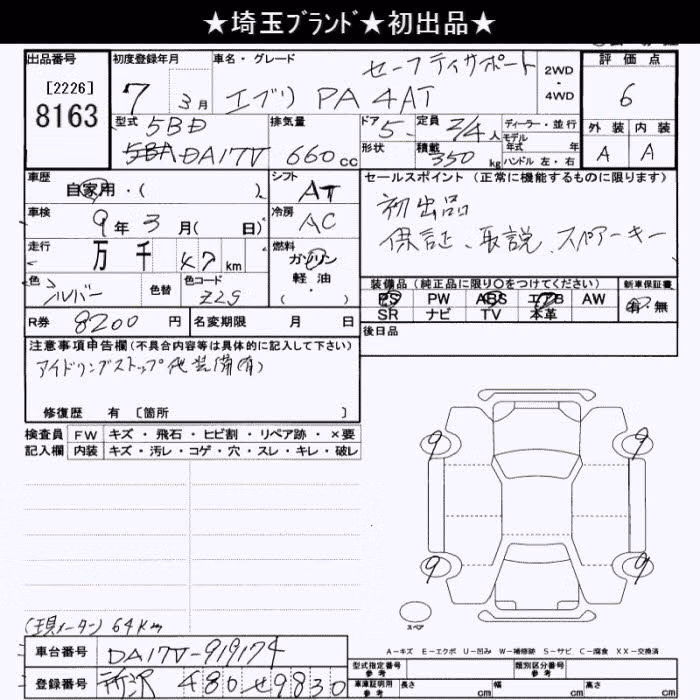 ★埼玉ﾌﾞﾗﾝﾄﾞ★初出品★
出品番号
[2226]
8163
初度登録年月
7 3月
車名・グレード
セーフティサポート
エブリ PA 4AT
2WD
4WD
評価点
6
外装 内装
A A
型式
5BD
5BA DA17V
排気量
660cc
ドア 5
形状
定員 2/4人
積載 350kg
ディーラー・並行
モデル
年式 年
ハンドル 左・右
車歴
自家用・( )
シフト
AT
車検
9年3月( 日)
冷房
AC
走行
万 千 47km
燃料
ガソリン
軽油
・( )
色
シルバー
色替
色コード
Z2S
R券 8200円
名変期限 月 日
セールスポイント(正常に機能するものに限ります)
初出品
保証、取説、スペアーキー
装備品(純正品に限り○をつけてください)
PS PW ABS エアB AW
SR ナビ TV 本革
新車保証書
有・無
後日品
注意事項申告欄(不具合内容等は具体的に記入して下さい)
アイドリングストップ 他装備(有)
修復歴 有 [箇所 ]
検査員 FW キズ・飛石・ヒビ割・リペア跡・×要
記入欄 内装 キズ・汚レ・コゲ・穴・スレ・キレ・破レ
9 9
9 9
スペア
(現メーター) 64Km
A-キズ E-エクボ U-凹み W-補修跡 S-サビ C-腐食 XX-交換済
車台番号 DA17V-919174
登録番号 所沢 480 せ 9830
型式指定番号
参考
類別区分番号
参考
車庫証明用
参考
長さ cm 幅 cm 高さ cm